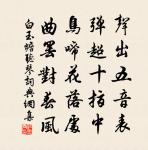 聲出五音表
彈超十指中
鳥啼花落處
曲罷對春風
白玉蟾聽琴詞典網集